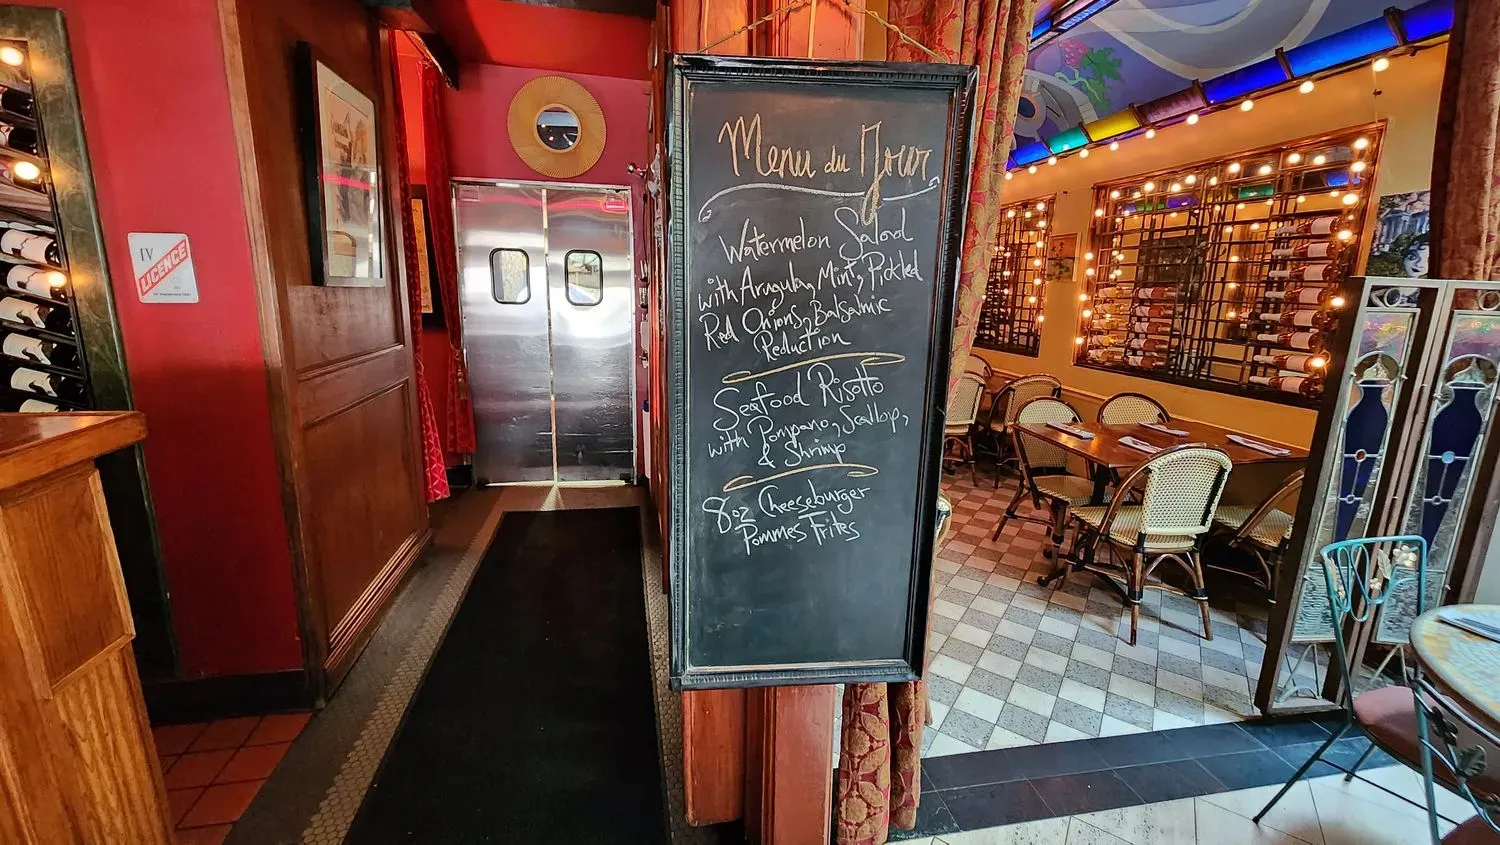 IV
LICENCE
Menu du Jour
Watermelon Salad
with Arugula, Mint, Pickled
Red Onions, Balsalmic
Reduction
Seafood Risotto
with Pompano, Scallop,
& Shrimp
8oz Cheeseburger
Pommes Frites